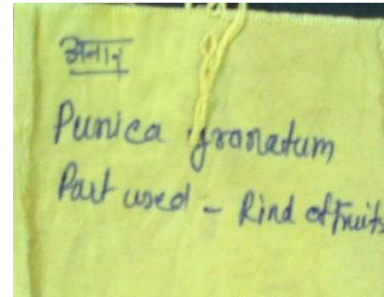 अनार
Punica granatum
Part used - Rind of Fruits